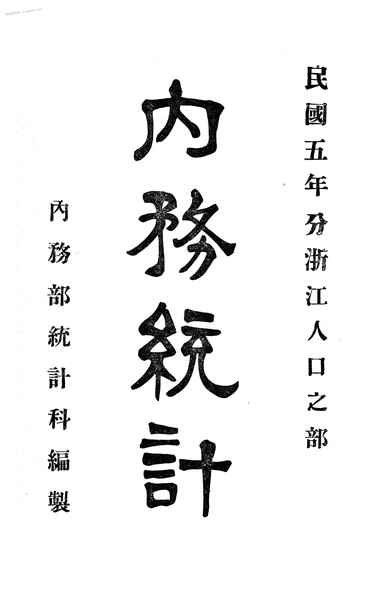 民國五年分浙江人口之部
內務統計
內務部統計科編製